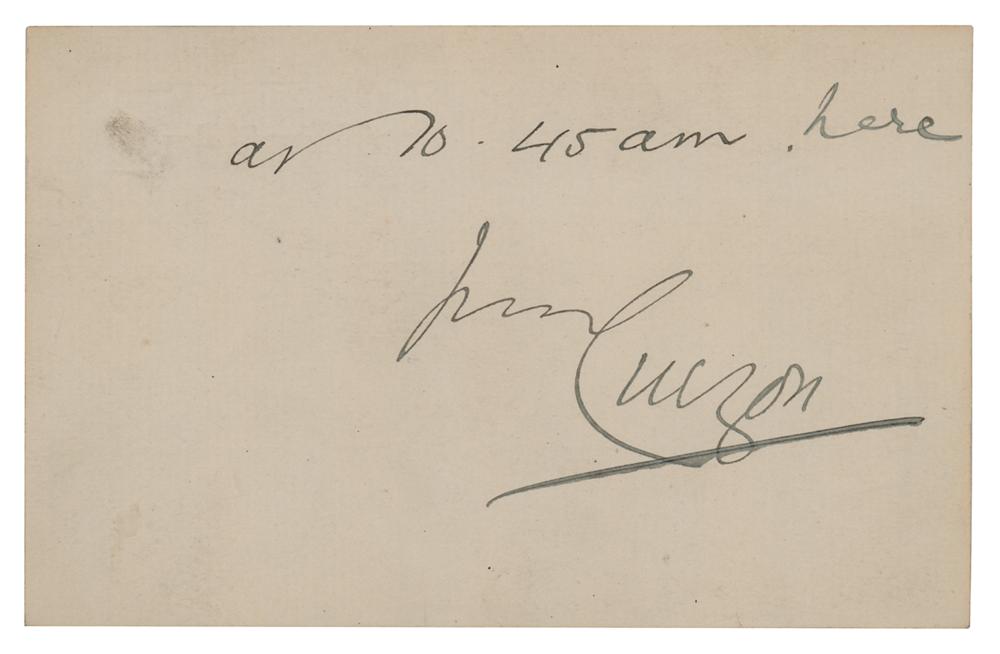 at 10.45 am. here
yrs
Curzon